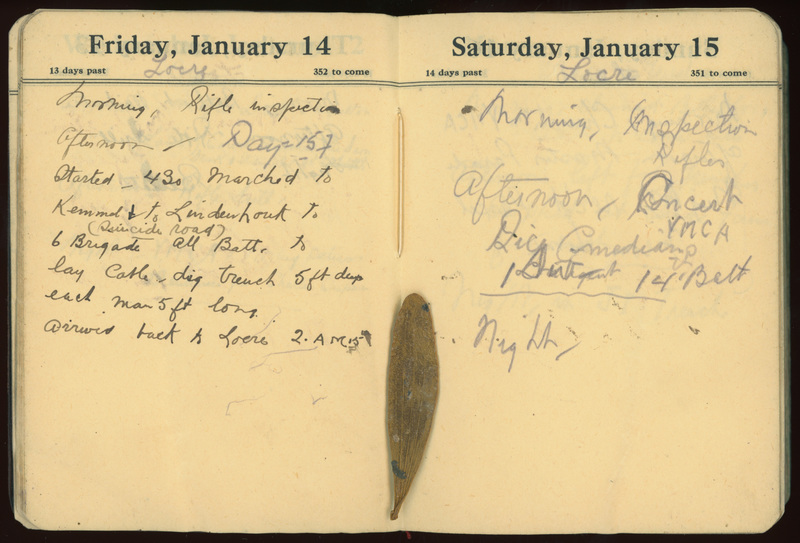 Friday, January 14
13 days past
Locre
352 to come
Morning, Rifle inspection
Afternoon - Day-157
Started - 430 Marched to
Kemmel & to Lindenhoek to
(Suicide road)
6 Brigade All Batt. to
lay Cable - dig trench 5 ft deep
each man 5 ft long.
Arrived back to Locre 2. A M 15th
Saturday, January 15
14 days past
Locre
351 to come
Morning, Inspection
Rifles
Afternoon, Concert
YMCA
Comedians
1 14 Batt
Night,